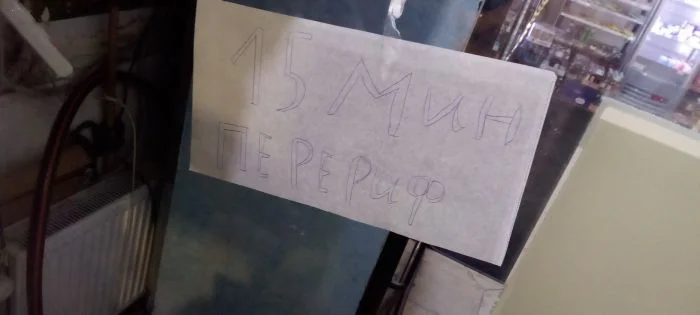 15 Мин
ПЕРЕРиф